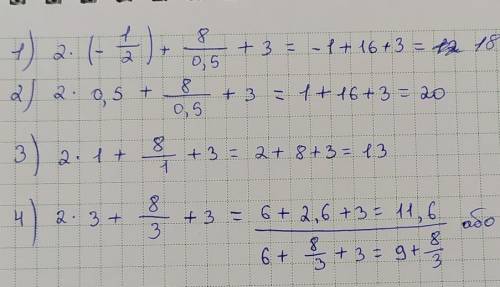 1) 2 · (- 1/2) + 8/0,5 + 3 = -1 + 16 + 3 = 18
2) 2 · 0,5 + 8/0,5 + 3 = 1 + 16 + 3 = 20
3) 2 · 1 + 8/1 + 3 = 2 + 8 + 3 = 13
4) 2 · 3 + 8/3 + 3 = 6 + 2,6 + 3 = 11,6 або
6 + 8/3 + 3 = 9 + 8/3